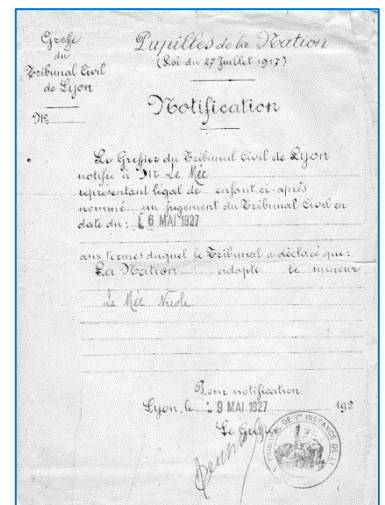 Greffe
du
Tribunal Civil
de Lyon
Nº
Pupilles de la Nation
(Loi du 27 Juillet 1917)
Notification
Le Greffier du Tribunal Civil de Lyon
notifie à Mr Le Mée
représentant légal de enfant ci-après
nommé un jugement du Tribunal Civil en
date du : 6 MAI 1927
aux termes duquel le Tribunal a déclaré que :
La Nation adopte le mineur
Le Mée Nicole
Pour notification
Lyon, le 9 MAI 1927 192
Le Greffier
TRIBUNAL DE 1re INSTANCE DE